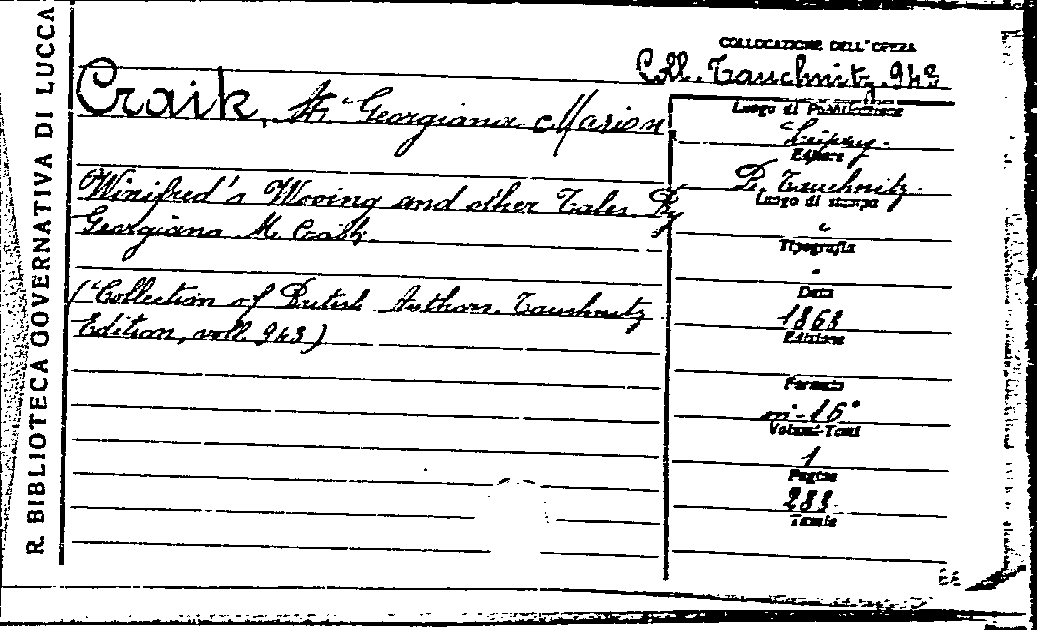 R. BIBLIOTECA GOVERNATIVA DI LUCCA
COLLOCAZIONE DELL'OPERA
Coll. Tauchnitz. 943
Craik, Georgiana Marion
Luogo di Pubblicazione
Leipzig.
Editore
B. Tauchnitz.
Luogo di stampa
Winifred's Wooing and other Tales. By
Georgiana M. Craik.
"
Tipografia
"
Data
1868
Edizione
("Collection of British Authors. Tauchnitz
Edition, voll. 943)
Formato
in-16°
Volumi-Tomi
1
Pagine
288
Tavole